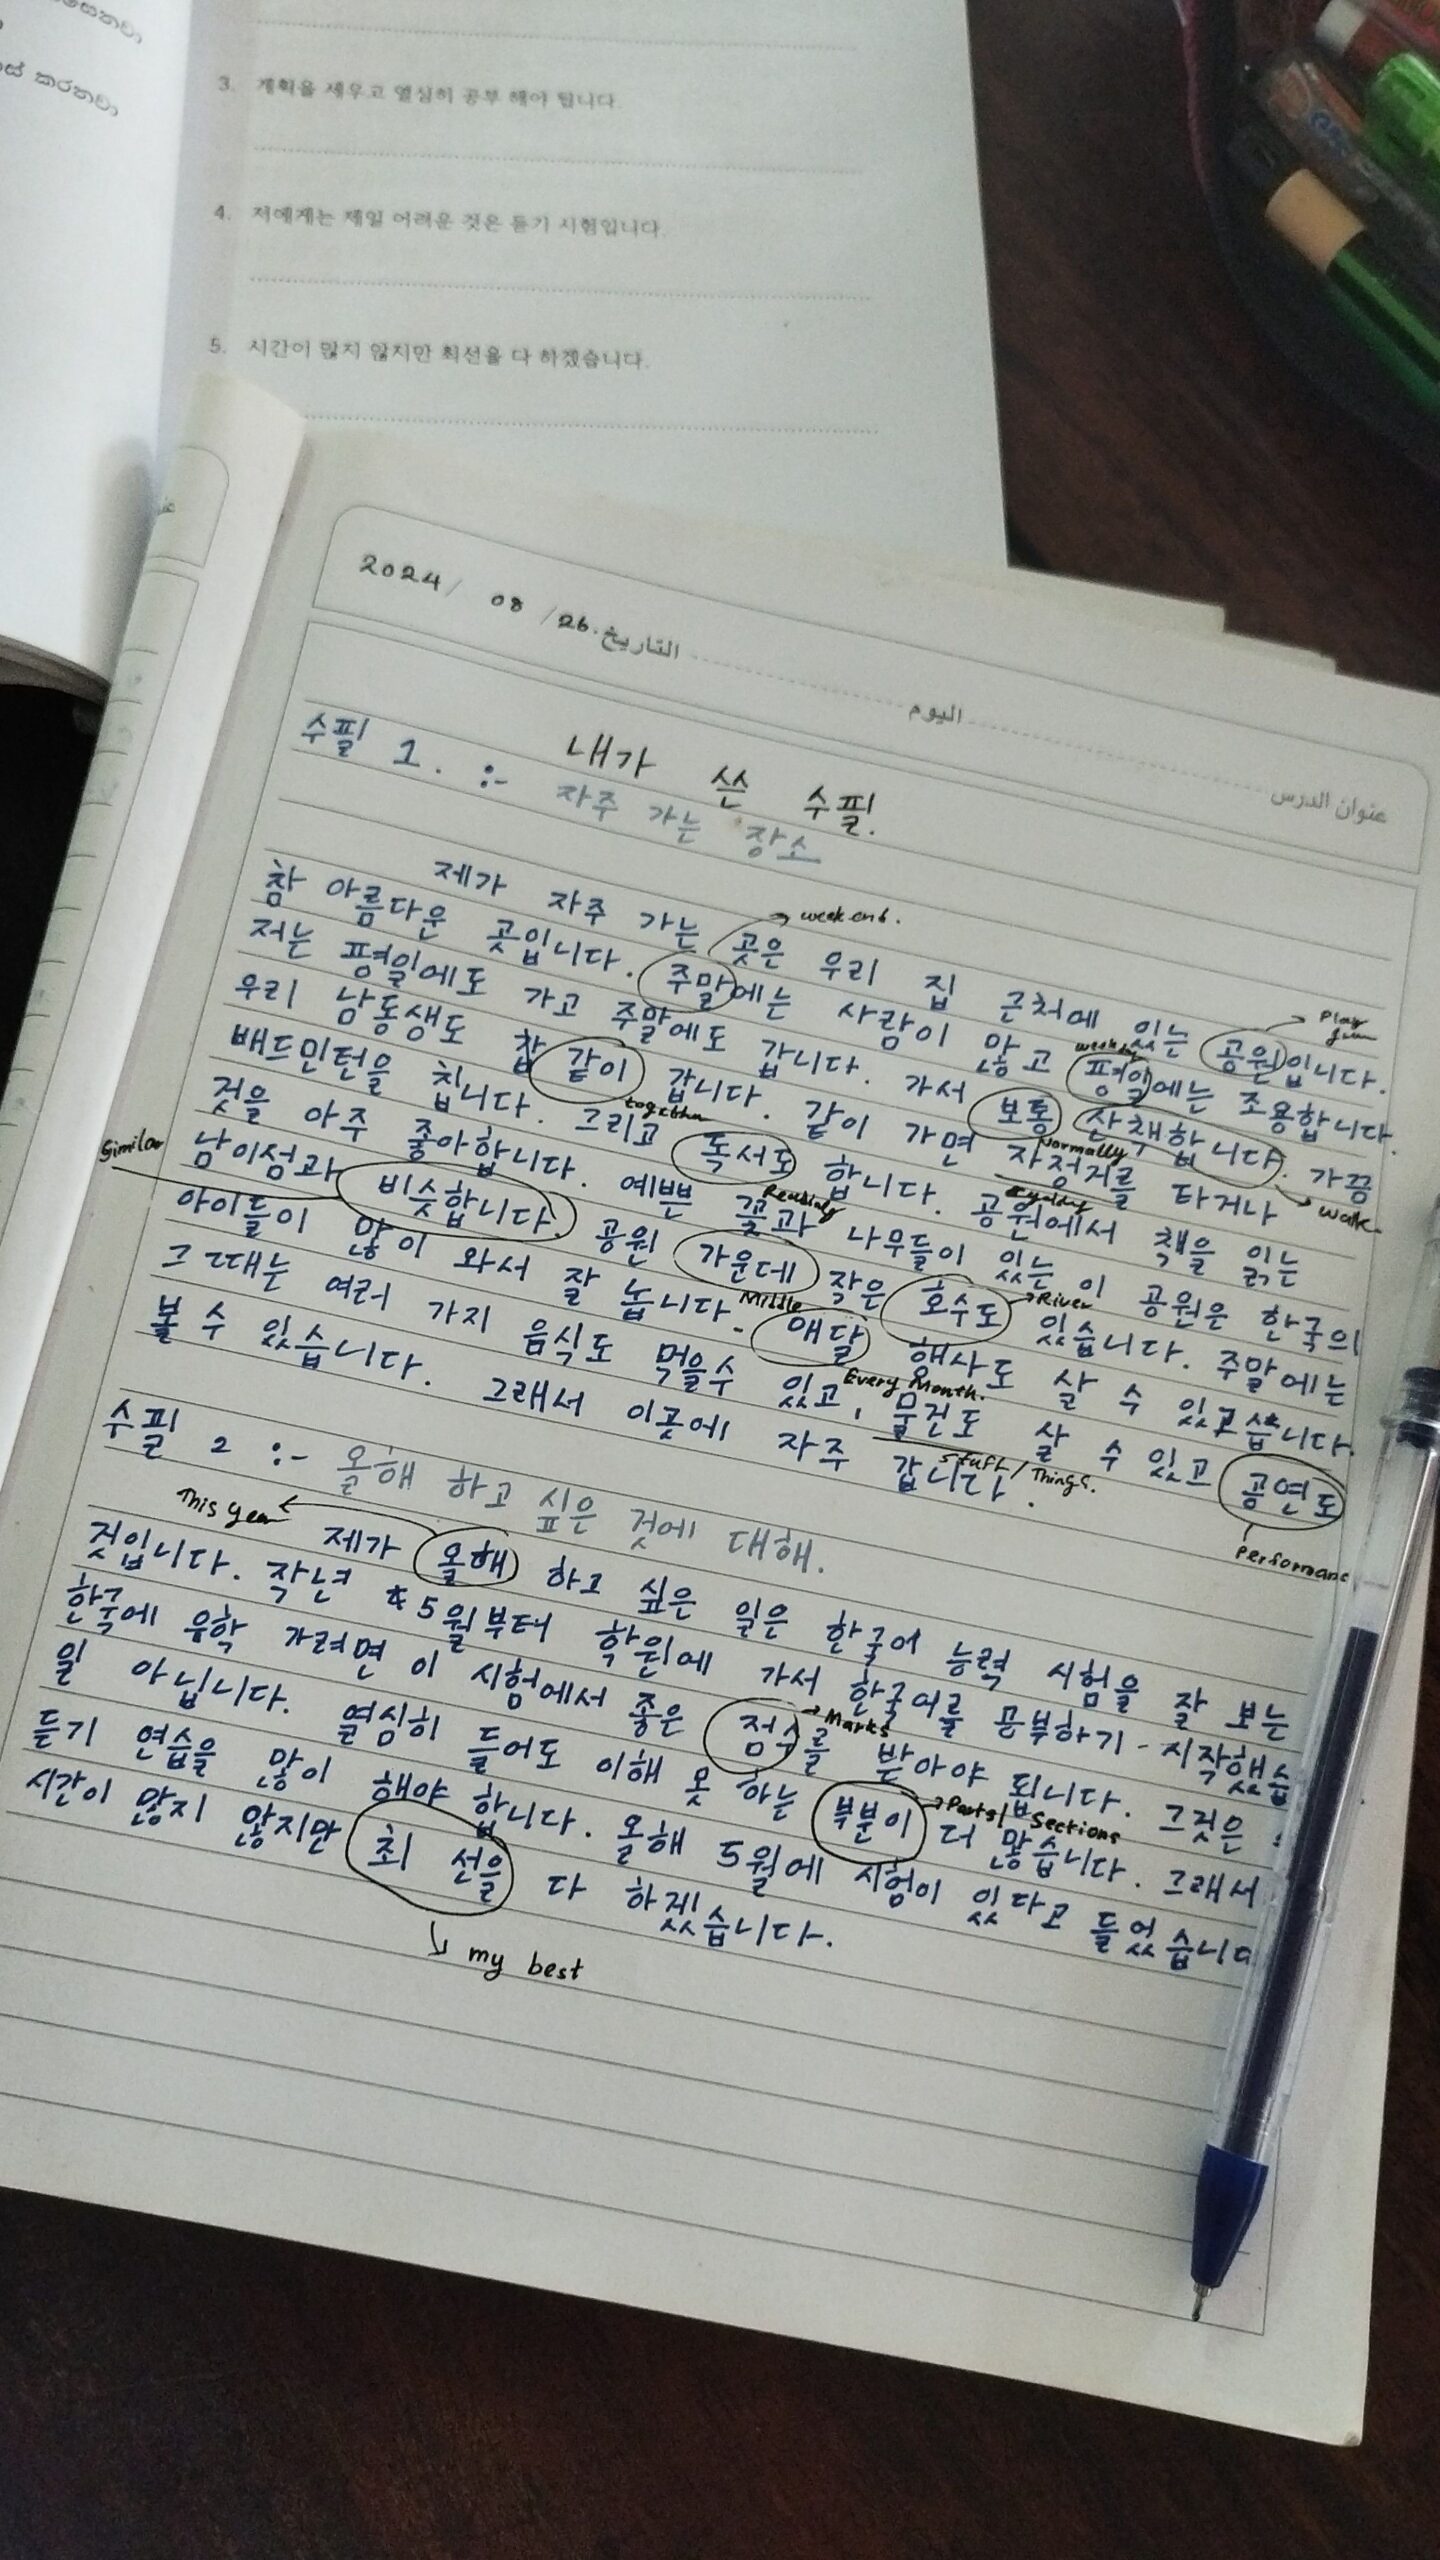 කරනවා
3. 계획을 세우고 열심히 공부 해야 됩니다.
4. 저에게는 제일 어려운 것은 듣기 시험입니다.
5. 시간이 많지 않지만 최선을 다 하겠습니다.
2024/ 08 /26. التاريخ
اليوم
عنوان الدرس
내가 쓴 수필.
수필 1. :- 자주 가는 장소
제가 자주 가는 곳은 우리 집 근처에 있는 공원입니다.
week end.
Play
참 아름다운 곳입니다. 주말에는 사람이 많고 평일에는 조용합니다.
week day
저는 평일에도 가고 주말에도 갑니다. 가서 보통 산책합니다. 가끔
Normally
walk
우리 남동생도 같이 갑니다. 같이 가면 자정거를 타거나
together
cycling
배드민턴을 칩니다. 그리고 독서도 합니다. 공원에서 책을 읽는
Reading
것을 아주 좋아합니다. 예쁜 꽃과 나무들이 있는 이 공원은 한국의
Similar
남이섬과 비슷합니다. 공원 가운데 작은 호수도 있습니다. 주말에는
Middle
River
아이들이 많이 와서 잘 놉니다. 매달 행사도 살 수 있습니다.
Every Month.
그 때는 여러 가지 음식도 먹을수 있고, 물건도 살 수 있고 공연도
stuff / Things.
Performanc
볼 수 있습니다. 그래서 이곳에 자주 갑니다.
수필 2 :- 올해 하고 싶은 것에 대해.
This year
제가 올해 하고 싶은 일은 한국어 능력 시험을 잘 보는
것입니다. 작년 5월부터 학원에 가서 한국어를 공부하기 시작했습
한국에 유학 가려면 이 시험에서 좋은 점수를 받아야 되니다. 그것은
Marks
일 아닙니다. 열심히 들어도 이해 못 하는 부분이 더 많습니다. 그래서
Parts/ Sections
듣기 연습을 많이 해야 합니다. 올해 5월에 시험이 있다고 들었습니다
시간이 많지 않지만 최 선을 다 하겠습니다.
my best